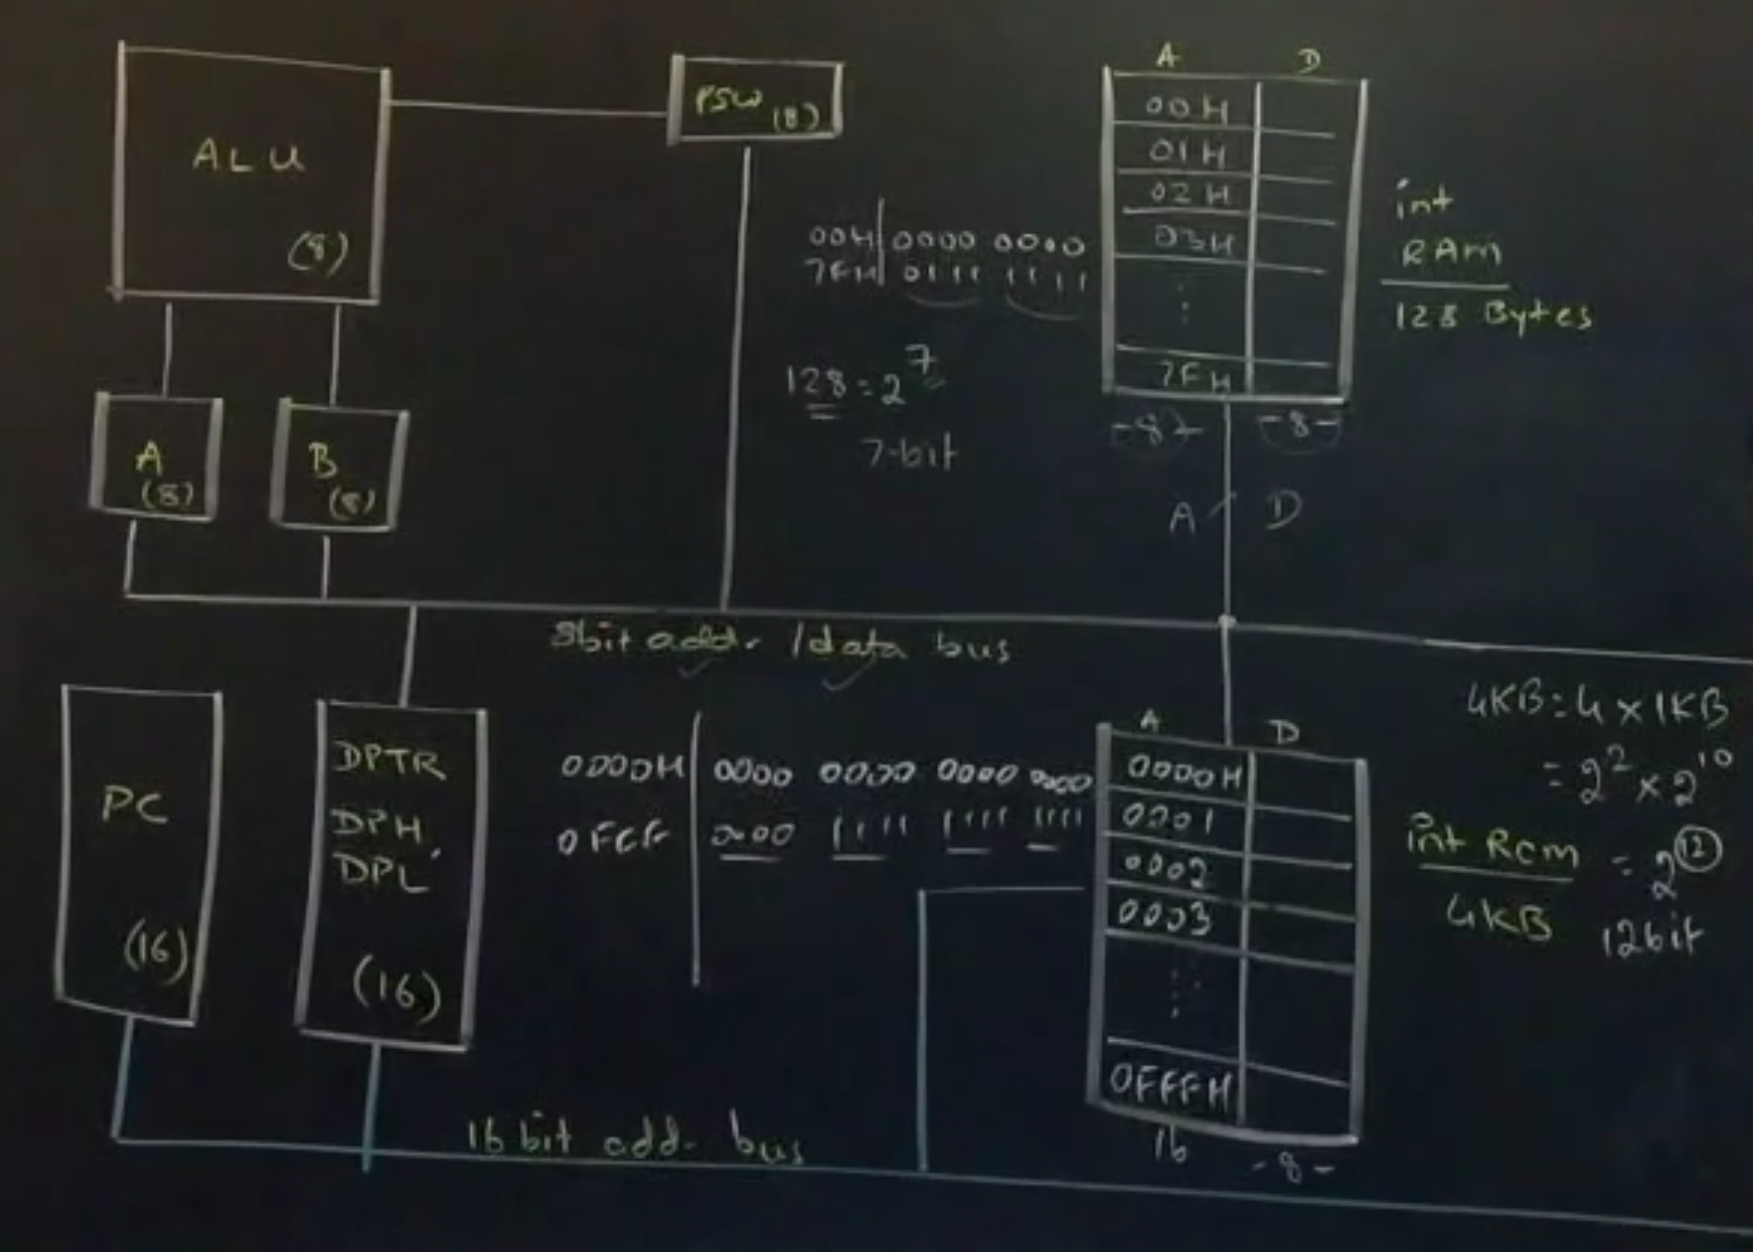 ALU
(8)
PSW (8)
A
(8)
B
(8)
00H 0000 0000
7FH 0111 1111
128 = 2^7
7-bit
A D
00H
01H
02H
03H
⋮
7FH
-8- -8-
A D
int
RAM
128 Bytes
8bit add. /data bus
PC
(16)
DPTR
DPH
DPL
(16)
0000H 0000 0000 0000 0000
0FFF 0000 1111 1111 1111
A D
0000H
0001
0002
0003
⋮
0FFFH
16 -8-
4KB = 4 × 1KB
= 2^2 × 2^10
= 2^12
12bit
int Rom
4KB
16 bit add. bus